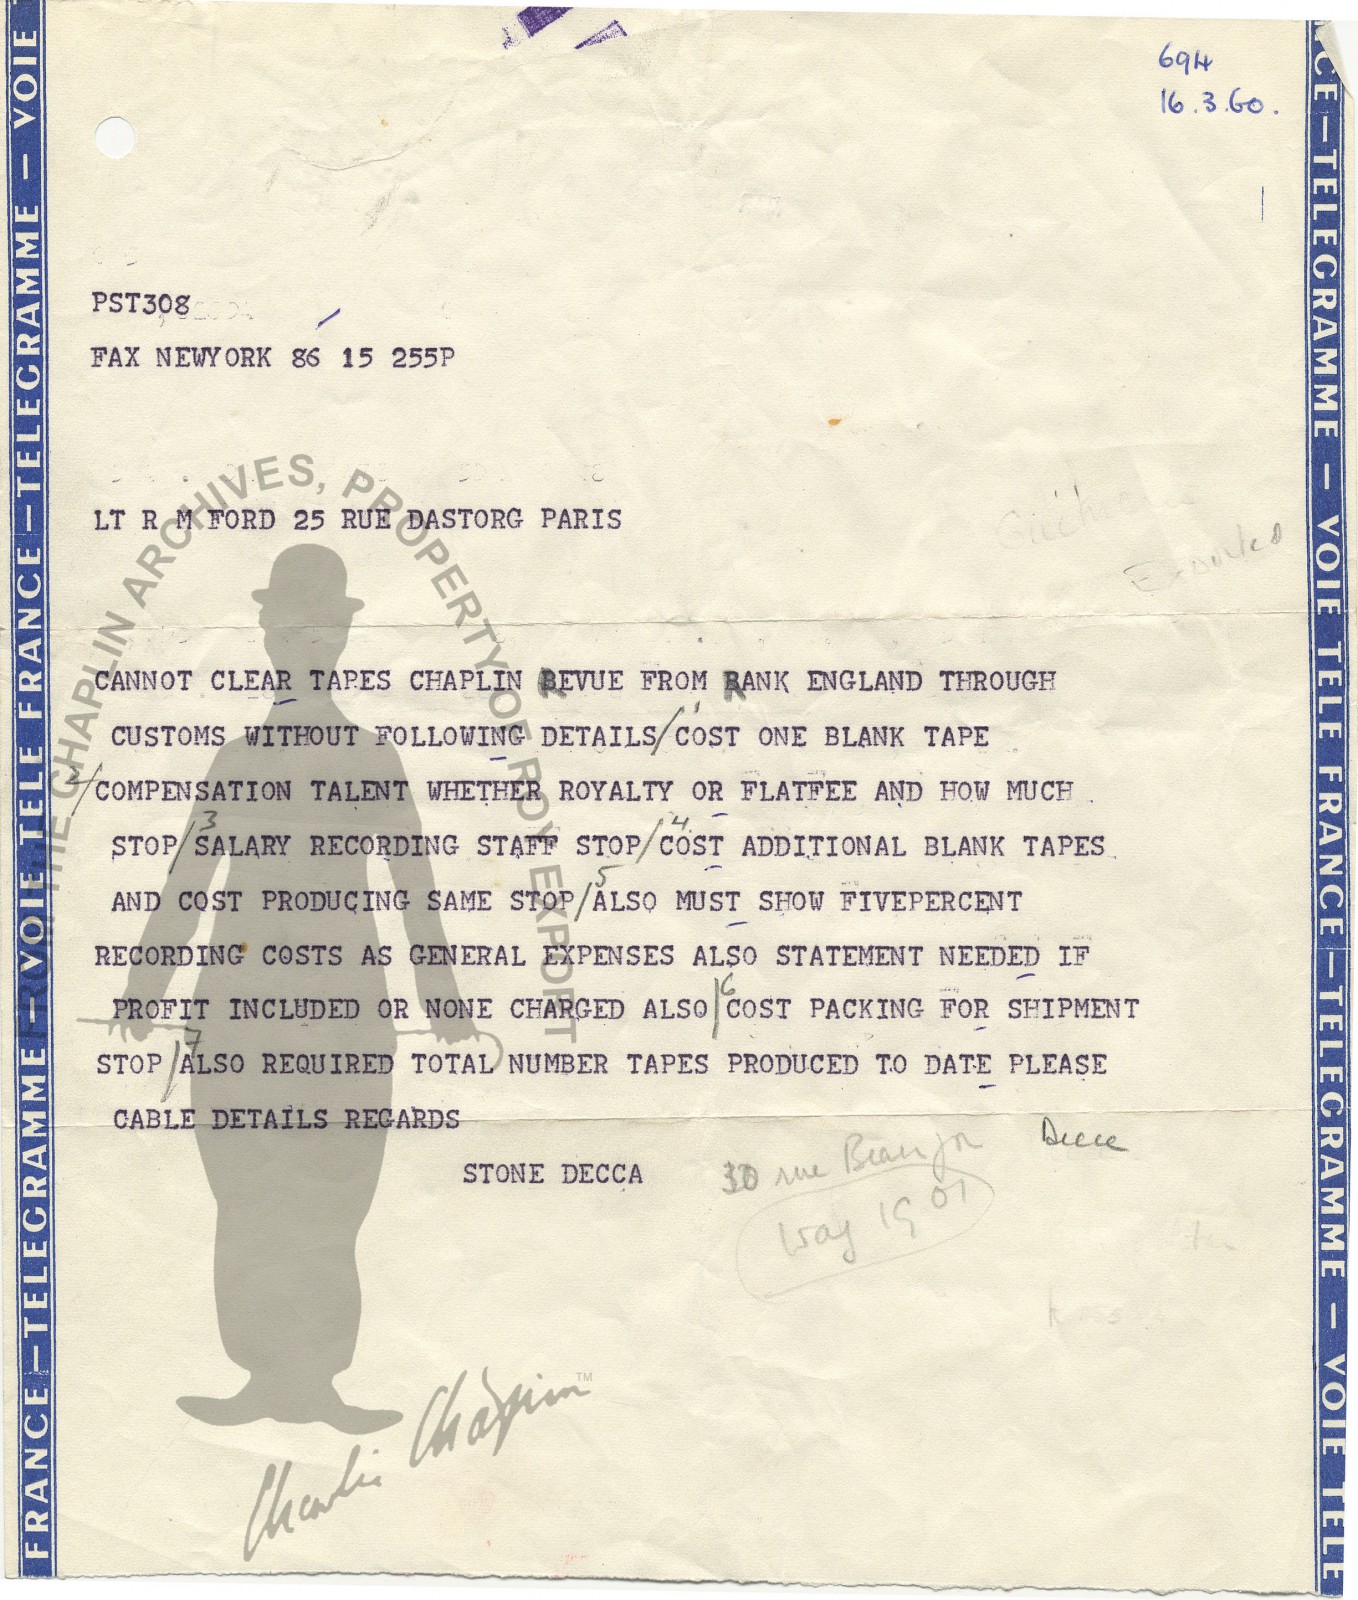 694
16.3.60.
PST308
FAX NEWYORK 86 15 255P
LT R M FORD 25 RUE DASTORG PARIS
CANNOT CLEAR TAPES CHAPLIN REVUE FROM RANK ENGLAND THROUGH
CUSTOMS WITHOUT FOLLOWING DETAILS/ COST ONE BLANK TAPE
2/ COMPENSATION TALENT WHETHER ROYALTY OR FLATFEE AND HOW MUCH
STOP/3 SALARY RECORDING STAFF STOP/4 COST ADDITIONAL BLANK TAPES
AND COST PRODUCING SAME STOP/5 ALSO MUST SHOW FIVEPERCENT
RECORDING COSTS AS GENERAL EXPENSES ALSO STATEMENT NEEDED IF
PROFIT INCLUDED OR NONE CHARGED ALSO/6 COST PACKING FOR SHIPMENT
STOP/7 ALSO REQUIRED TOTAL NUMBER TAPES PRODUCED TO DATE PLEASE
CABLE DETAILS REGARDS
STONE DECCA
30 rue Beaujon
Wag 19 01
THE CHAPLIN ARCHIVES, PROPERTY OF ROY EXPORT
Charlie Chaplin TM
FRANCE—TELEGRAMME—VOIE TELE FRANCE—TELEGRAMME—VOIE
CE—TELEGRAMME—VOIE TELE FRANCE—TELEGRAMME—VOIE TELE